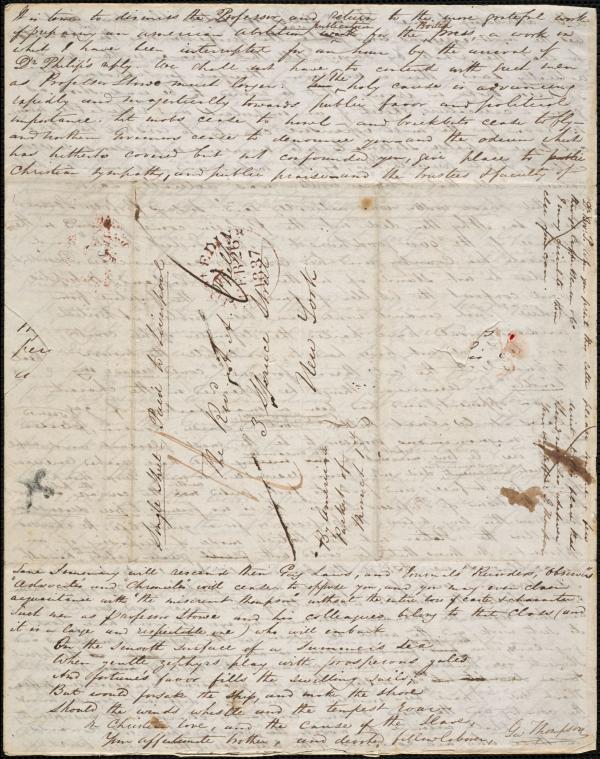 It is time to dismiss the Professor, and return to the more grateful work
of preparing an American abolition publication for the British Press, a work in
which I have been interrupted for an hour by the arrival of
Dr Philip's reply. We shall not have to contend with such men
as Professor Stowe much longer. The holy cause is advancing
rapidly and majestically towards public favor and political
importance. Let mobs cease to howl and brickbats cease to fly
and northern Governors cease to denounce you and the odium which
has hitherto covered but not confounded you, give place to
Christian sympathy, and public praise and the trustees & faculty of
Single Sheet Paid to Liverpool
The Revd A. A. Phelps
3 Spruce Street
New York
By American
Packet of
March 1st
FEB 26
1837
Lane Seminary will rescind their Gag Laws, and "Journals" "Recorders" "Observers"
"Advocates and Chronicles" will cease to oppose you and you may even claim
acquaintance with "the miscreant Thompson" without the entire loss of caste & character.
Just men as Professor Stowe and his colleagues belong to that class (and
it is a large and respectable one) who will embark
On the smooth surface of a summer's sea
When gentle zephyrs play with prosperous gales
And fortune's favor fills the swelling sails;
But would forsake the ship and make the shore
Should the winds whistle and the tempest roar.
In Christian love, and the cause of the Slave,
Your affectionate brother, and devoted fellow laborer, Geo Thompson